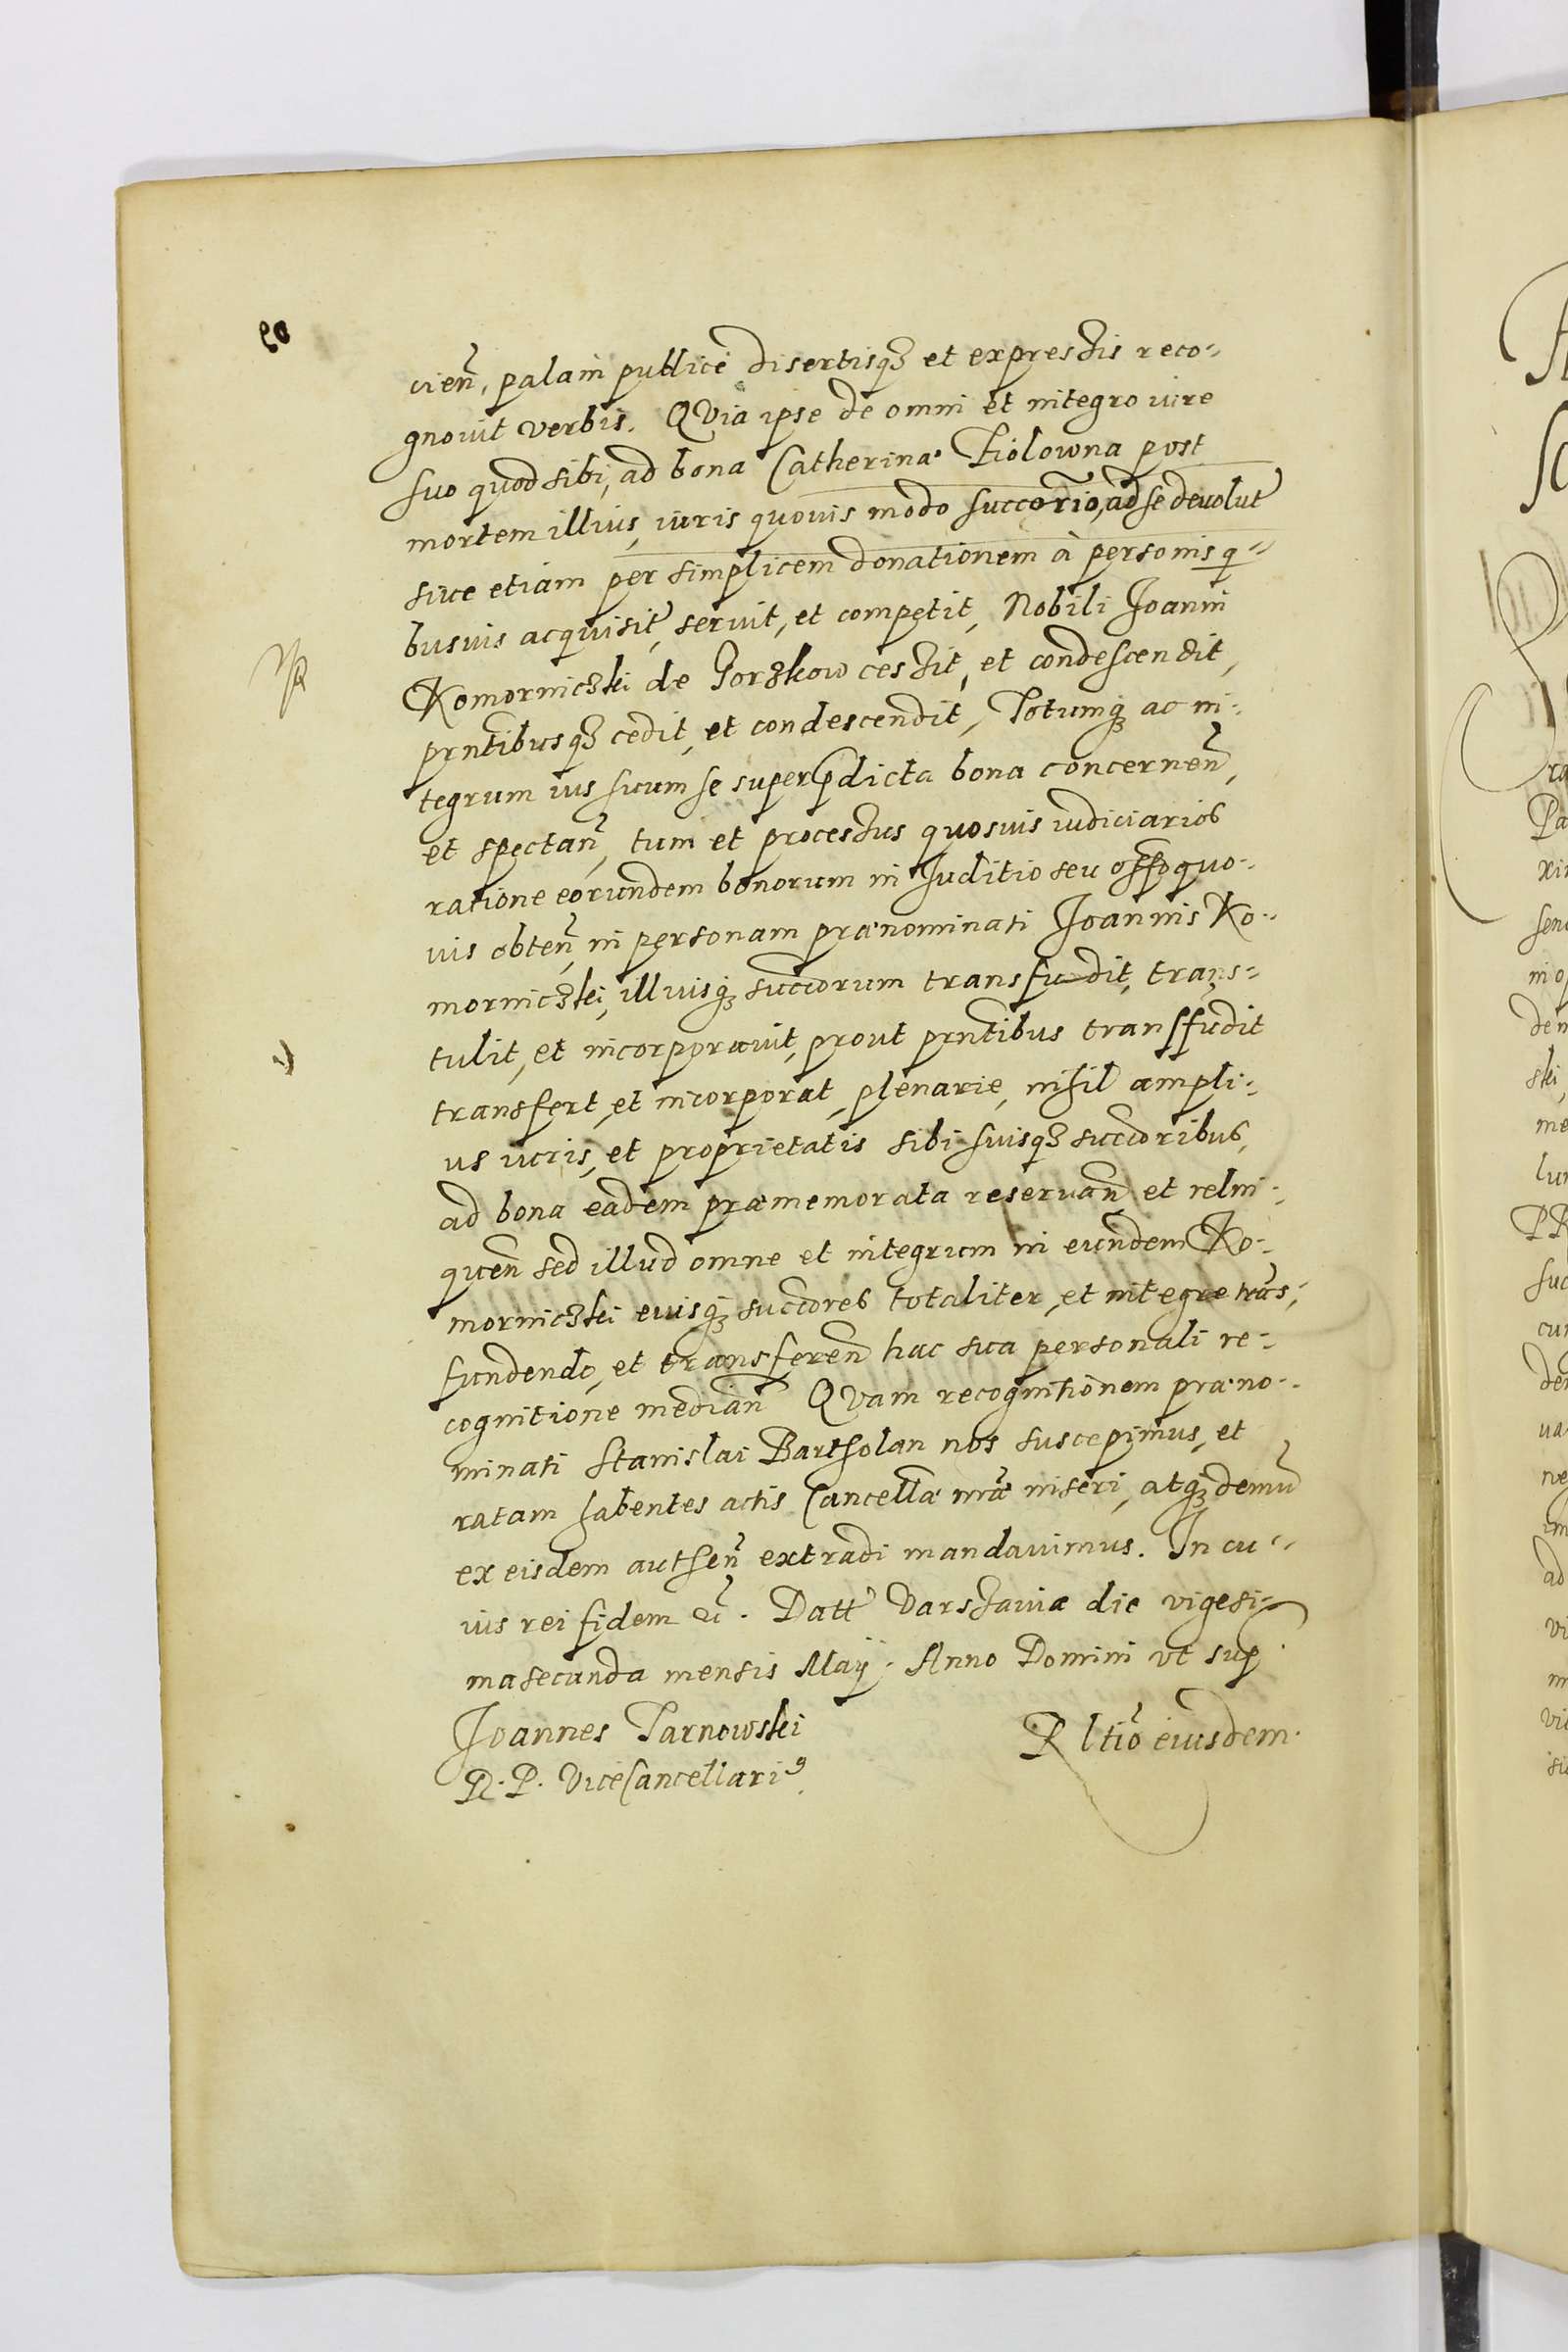 90
cień, palam publicè disertisqз et expressis reco-
gnouit verbis. QVia ipse de omni et integro iure
suo quod sibi, ad bona Catherinæ Fiołowna post
mortem illius, iuris quouis modo succorio, ad se deuolut
siue etiam per simplicem donationem à personis q-
busuis acquisit, seruit, et competit, Nobili Joanni
Komorniczki de Gorzkow cessit, et condescendit,
prntibusqз cedit, et condescendit, Totumqз ac in-
tegrum ius suum se super pdicta bona concerneñ,
et spectañ, tum et processus quosuis iudiciarios
ratione eorundem bonorum in Juditio seu offo quo-
uis obteñ, in personam prænominati Joannis Ko-
morniczki, illiusqз succorum transfudit, trans-
tulit, et incorporauit, prout prntibus transfudit
transfert, et incorporat, plenarie, nihil ampli-
us iuris, et proprietatis sibi suisqз succoribus,
ad bona eadem præmemorata reseruañ, et relin-
queñ sed illud omne et integrum in eundem Ko-
morniczki eiusqз succores totaliter, et integre trãs-
fundendo, et transfereñ hac sua personali re-
cognitione mediañ QVam recognitionem præno-
minati Stanislai Bartholan nos suscepimus, et
ratam habentes actis Cancellæ nræ inseri, atqз demũ
ex eisdem autheñ extradi mandauimus. In cu-
ius rei fidem &c. Datt Varssauiæ die vigesi-
ma secunda mensis Maij. Anno Domini vt sup
Joannes Tarnowski
R. P. ViceCancellari9
R ltio eiusdem.